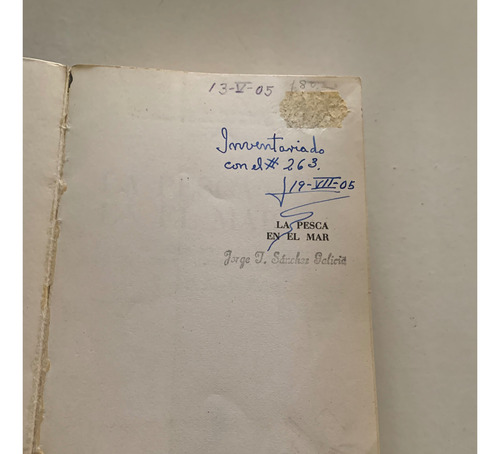 13-V-05
Inventariado
con el # 263.
19-VII-05
LA PESCA
EN EL MAR
Jorge T. Sánchez Galicia